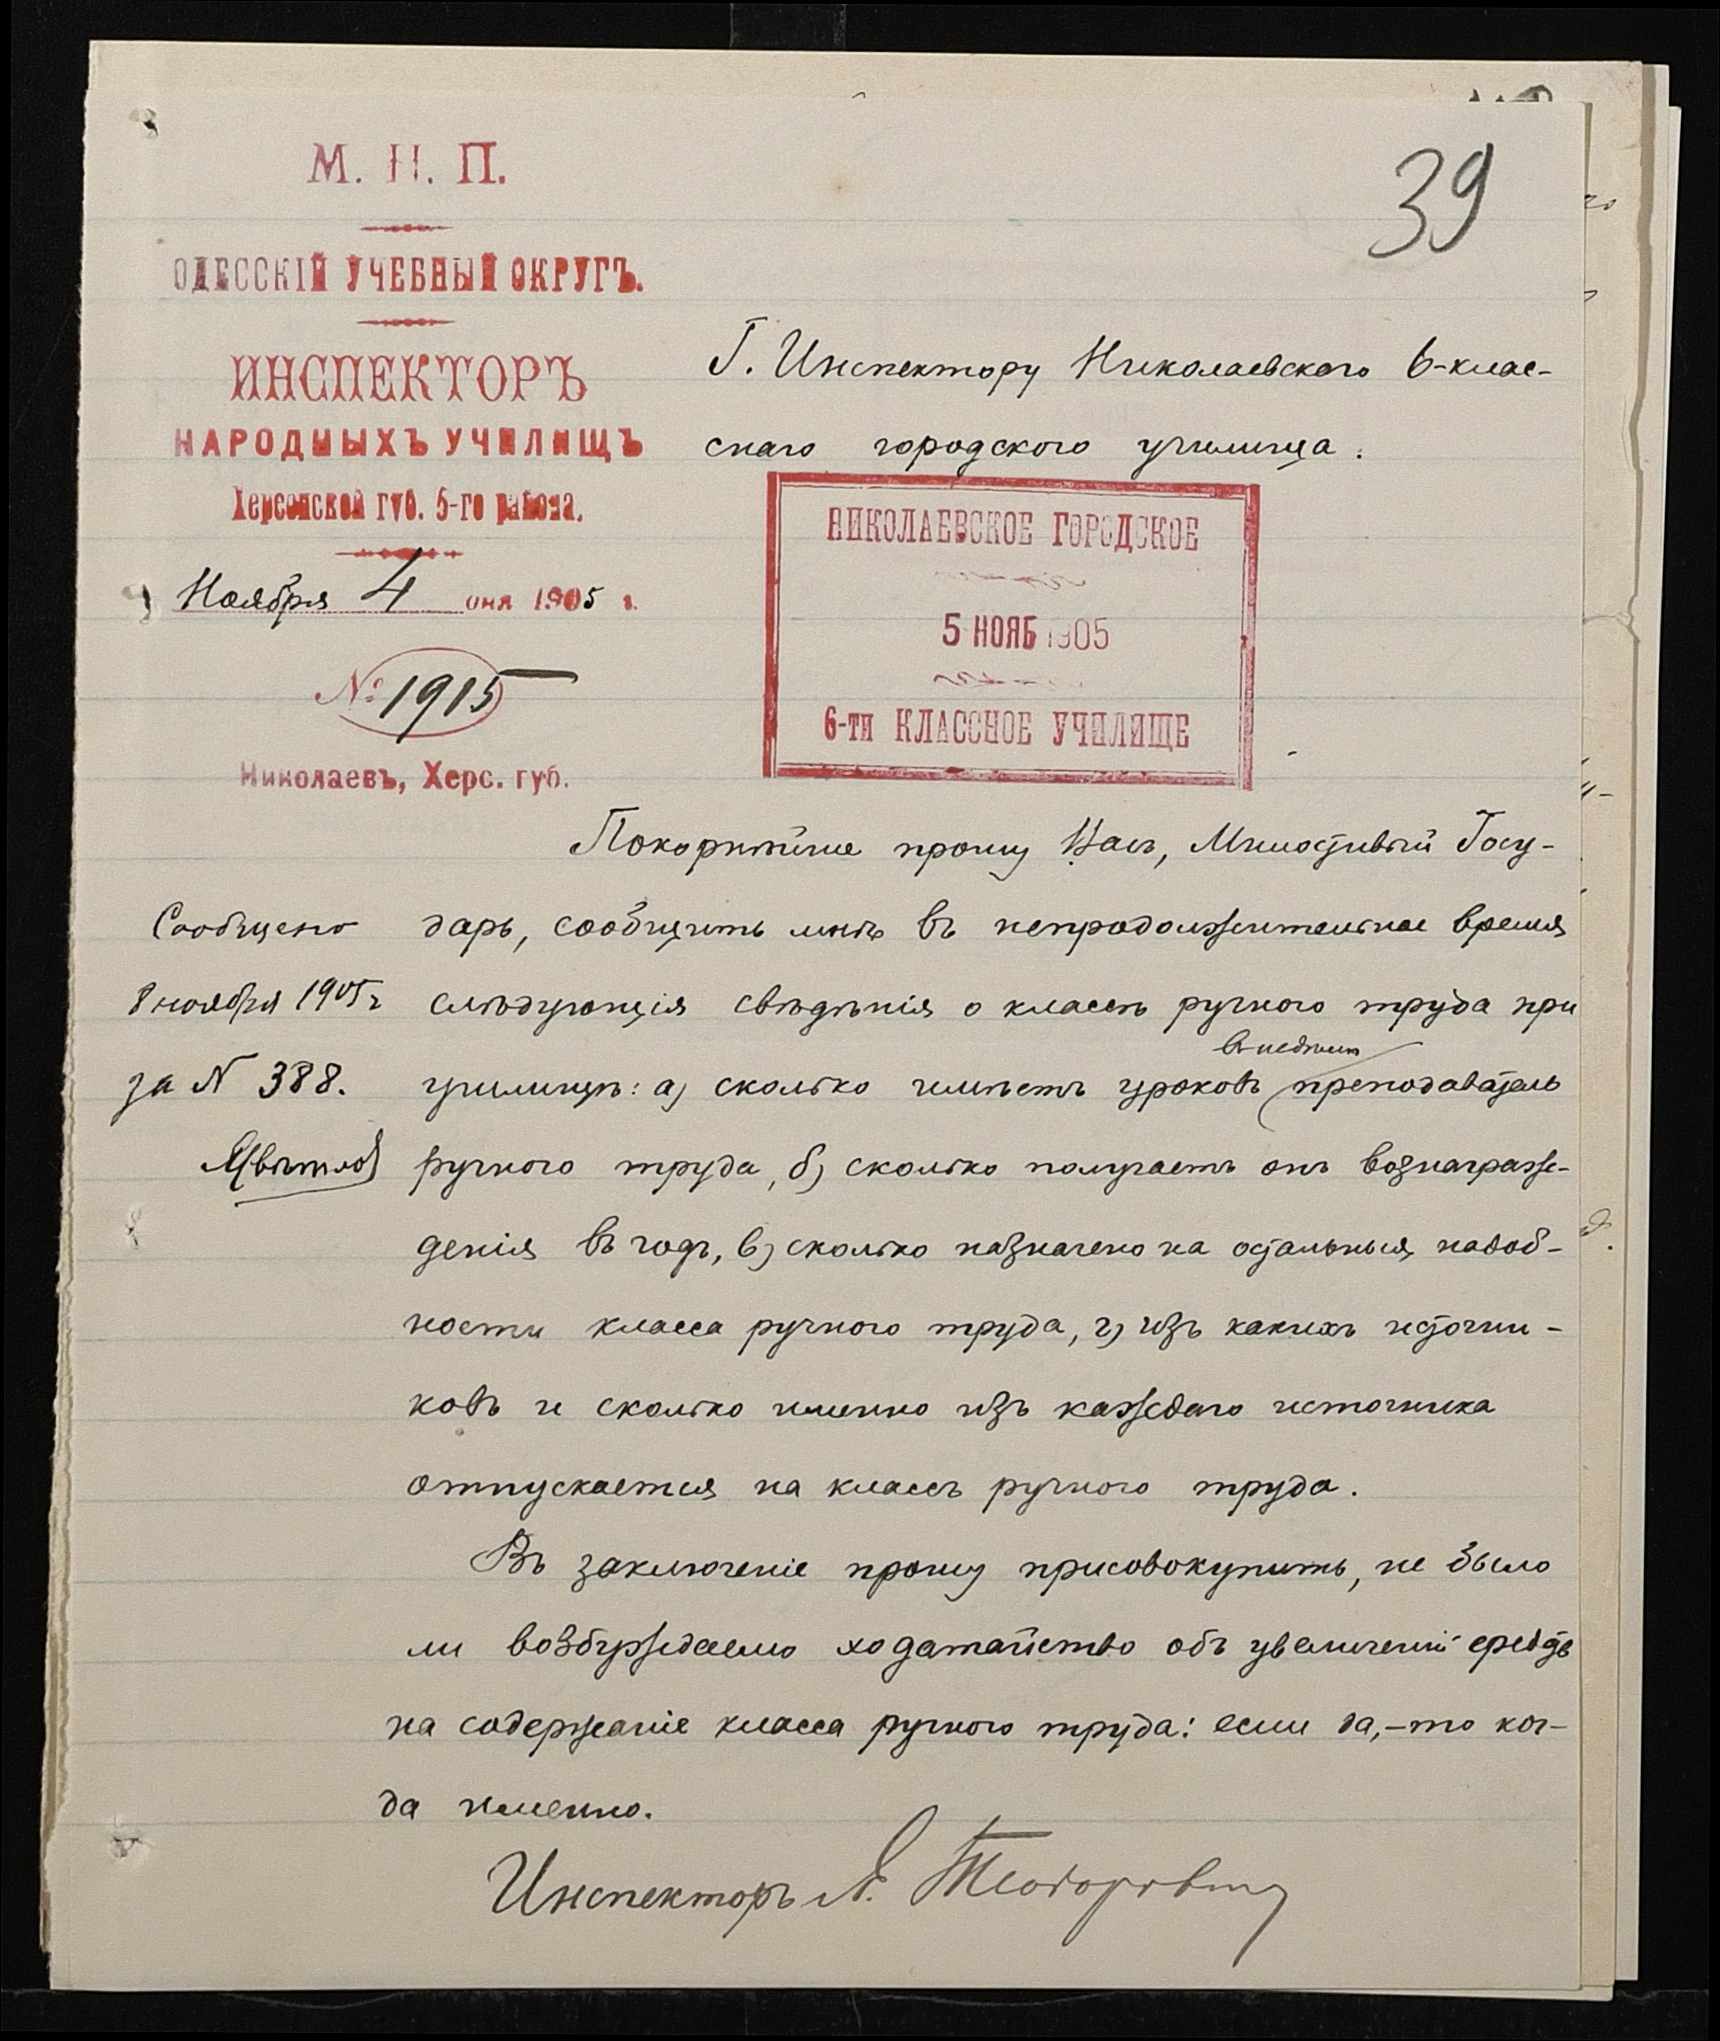 39
М. Н. П.
ОДЕССКІЙ УЧЕБНЫЙ ОКРУГЪ.
ИНСПЕКТОРЪ
НАРОДНЫХЪ УЧИЛИЩЪ
Херсонской губ. 5-го района.
Ноября 4 дня 1905 г.
№ 1915
Николаевъ, Херс. губ.
Г. Инспектору Николаевскаго 6-клас-
снаго городского училища.
НИКОЛАЕВСКОЕ ГОРОДСКОЕ
5 НОЯБ 1905
6-ти КЛАССНОЕ УЧИЛИЩЕ
Сообщено
8 ноября 1905 г
за N 388.
Покорнѣйше прошу Васъ, Милостивый Госу-
дарь, сообщить мнѣ въ непродолжительное время
слѣдующія свѣдѣнія о классѣ ручного труда при
училищѣ: а) сколько имѣетъ уроковъ въ недѣлю преподаватель
ручного труда, б) сколько получаетъ онъ вознаграж-
денія въ годъ, в) сколько назначено на остальныя надоб-
ности класса ручного труда, г) изъ какихъ источни-
ковъ и сколько именно изъ каждаго источника
отпускается на классъ ручного труда.
Въ заключеніе прошу присовокупить, не было
ли возбуждаемо ходатайство объ увеличеніи средствъ
на содержаніе класса ручного труда: если да,-то ког-
да именно.
Инспекторъ А.